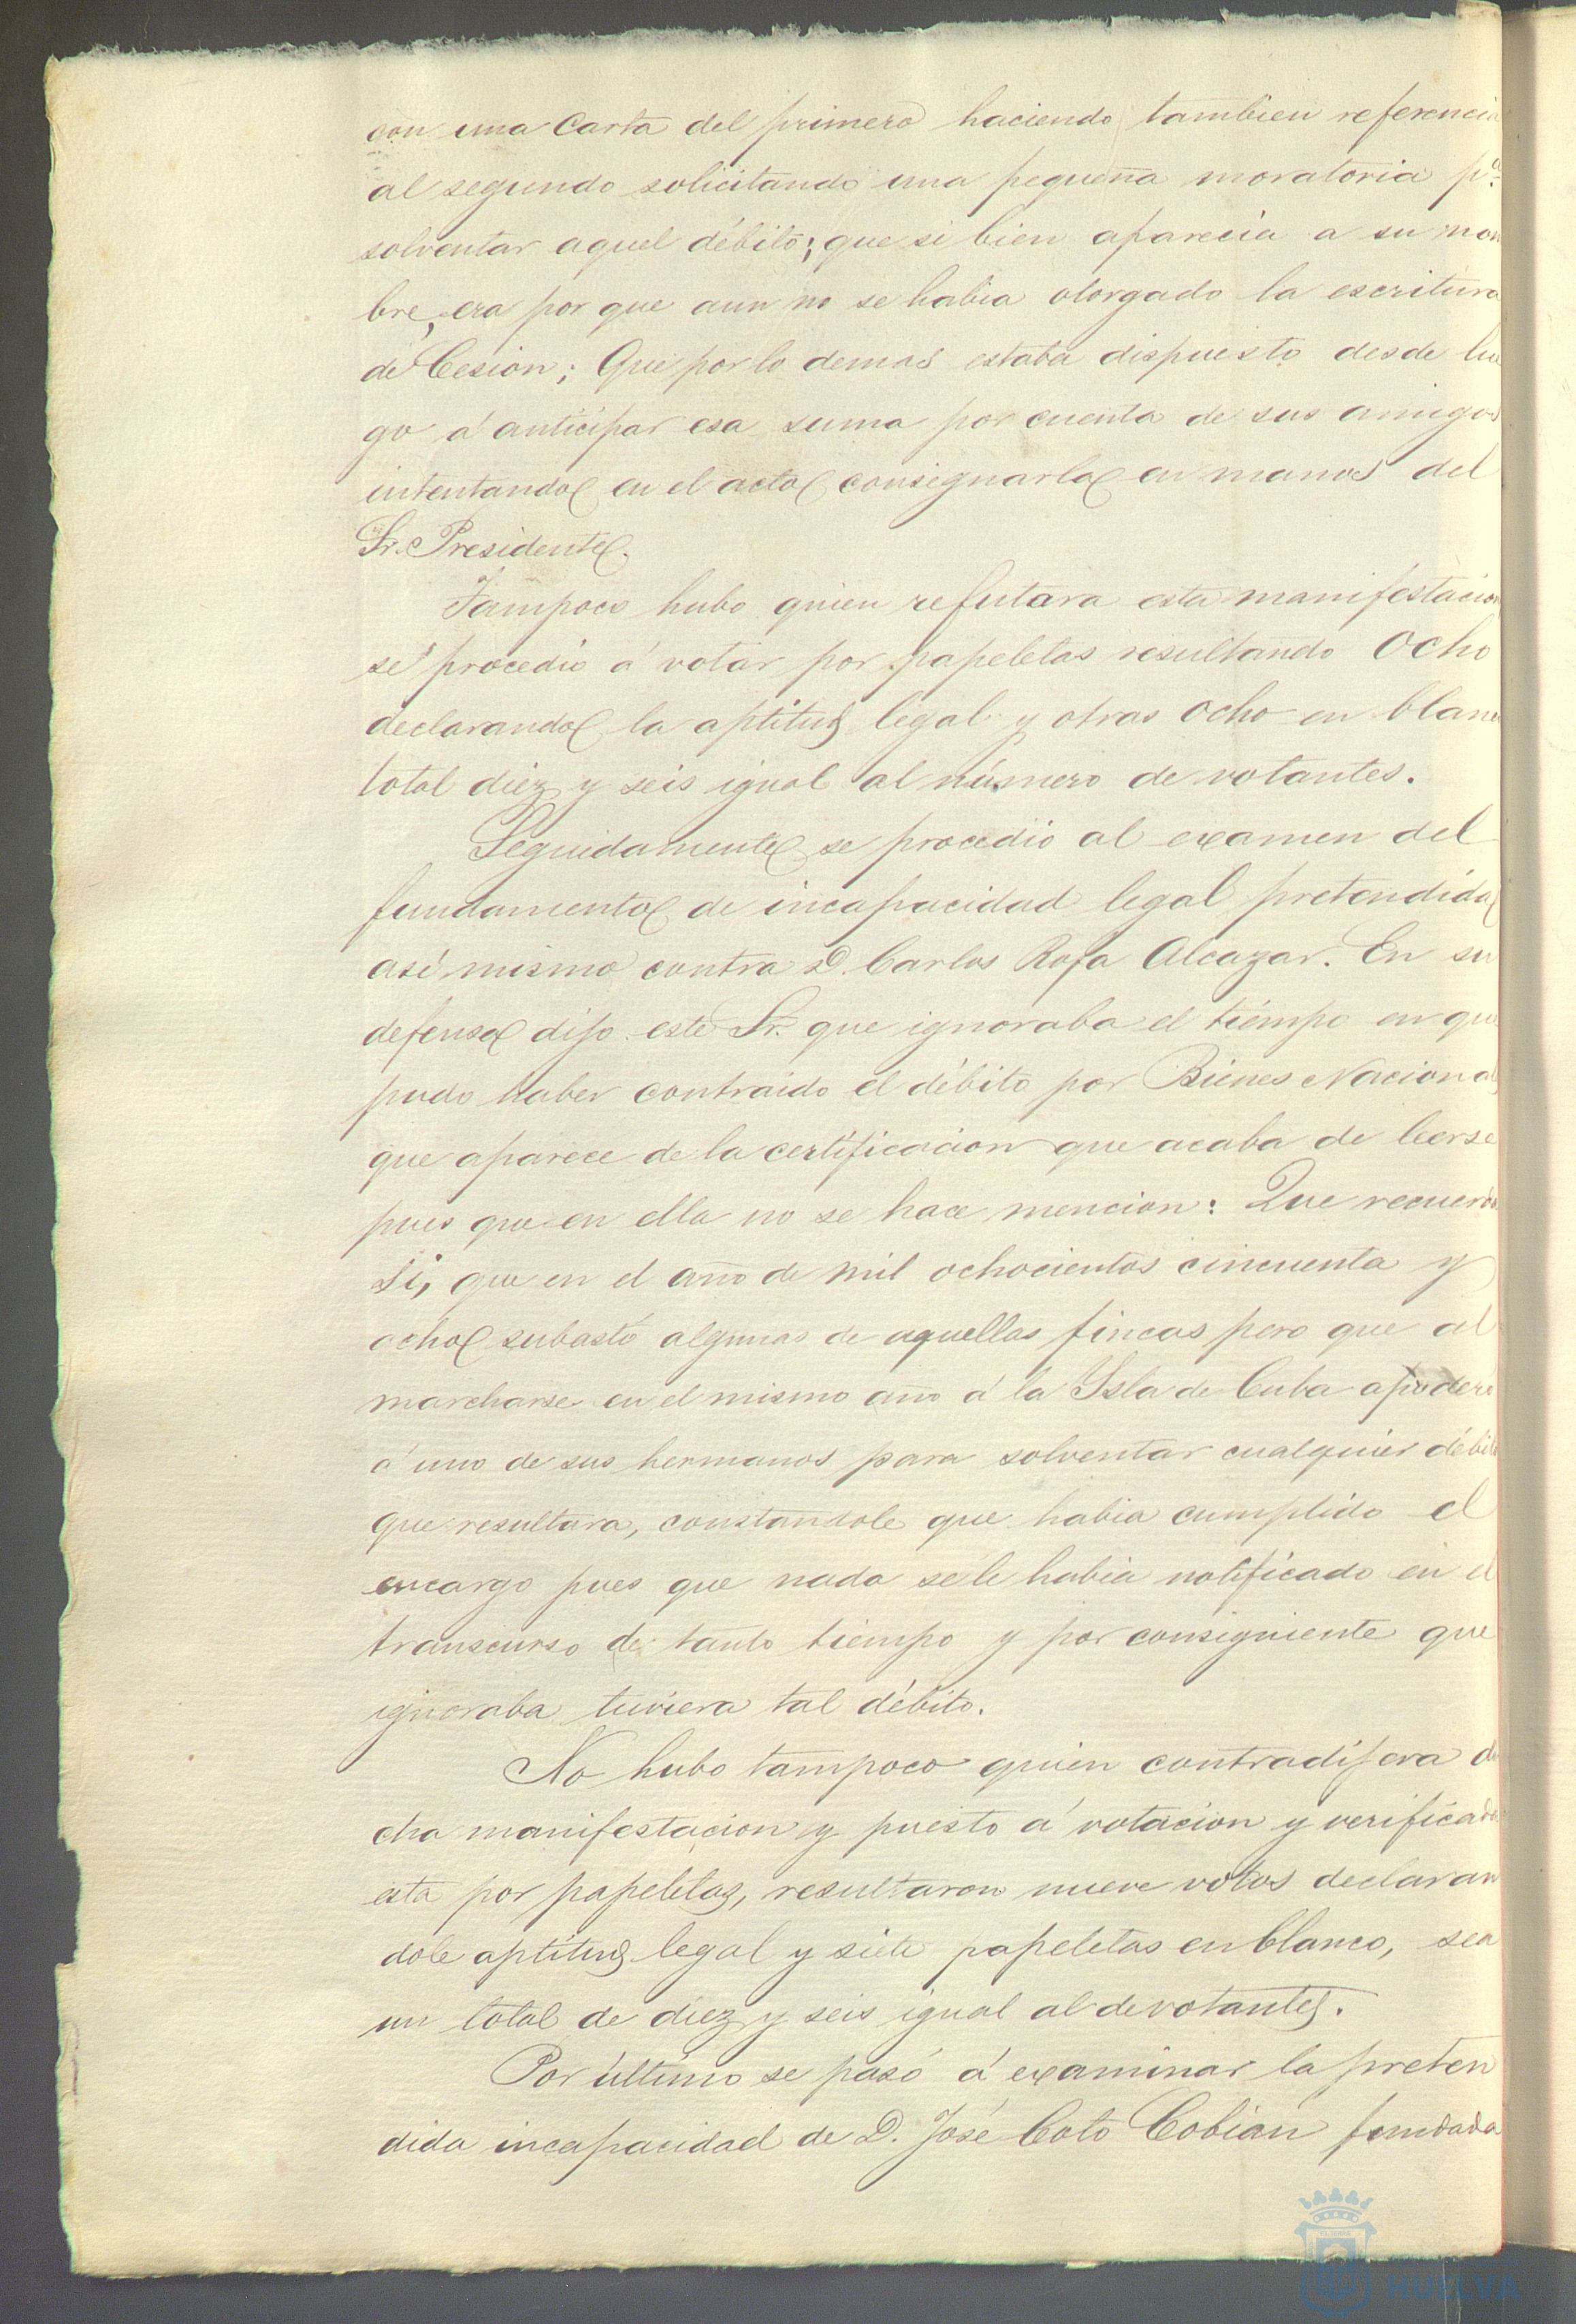 con una Carta del primero haciendo tambien referencia
al segundo solicitando una pequeña moratoria pª
solventar aquel débito; que si bien aparecia a su nom
bre, era por que aun no se habia otorgado la escritura
de Cesion; Que por lo demas estaba dispuesto desde lue
go á anticipar esa suma por cuenta de sus amigos
intentando en el acto consignarla en manos del
Sr. Presidente.
Tampoco hubo quien refutara esta manifestacion
se procedió á votar por papeletas resultando Ocho
declarando la aptitud legal y otras ocho en blanco
total diez y seis igual al número de votantes.
Seguidamente se procedió al examen del
fundamento de incapacidad legal pretendida
asi mismo contra D. Carlos Rofa Alcazar. En su
defensa dijo este Sr. que ignoraba el tiempo en que
pudo haber contraido el débito por Bienes Nacional
que aparece de la certificacion que acaba de leerse
pues que en ella no se hace mencion: Que recuerda
si, que en el año de mil ochocientos cincuenta y
ocho subastó algunas de aquellas fincas pero que al
marcharse en el mismo año á la Isla de Cuba apoderó
á uno de sus hermanos para solventar cualquier débito
que resultara, constandole que habia cumplido el
encargo pues que nada se le habia notificado en el
transcurso de tanto tiempo y por consiguiente que
ignoraba tuviera tal débito.
No hubo tampoco quien contradijera di
cha manifestacion y puesto á votacion y verificada
esta por papeletas, resultaron nueve votos declaran
dole aptitud legal y siete papeletas en blanco, sea
un total de diez y seis igual al de votantes.
Por último se pasó á examinar la preten
dida incapacidad de D. José Coto Cobian fundada
HUELVA